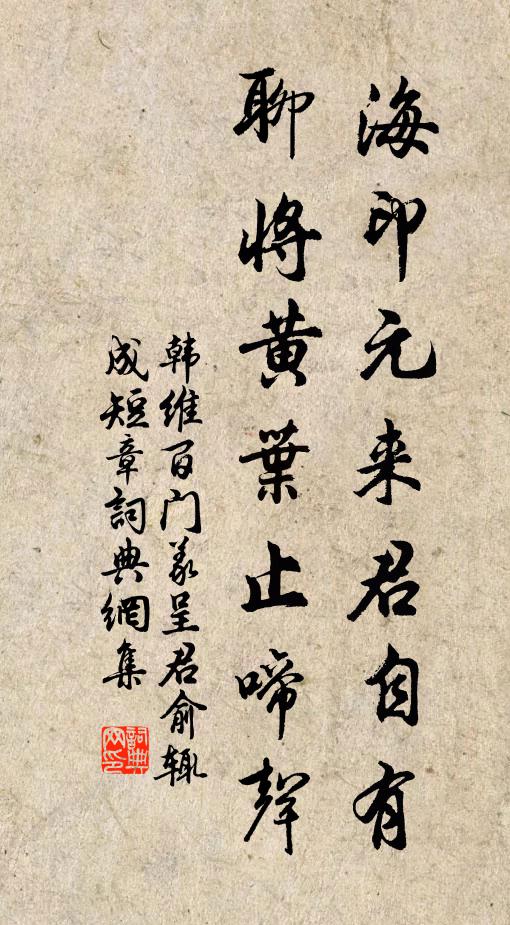 海印元来君自有
聊将黄葉止啼聲
韩维百门义呈君俞辄
成短章詞典網集
詞典網印